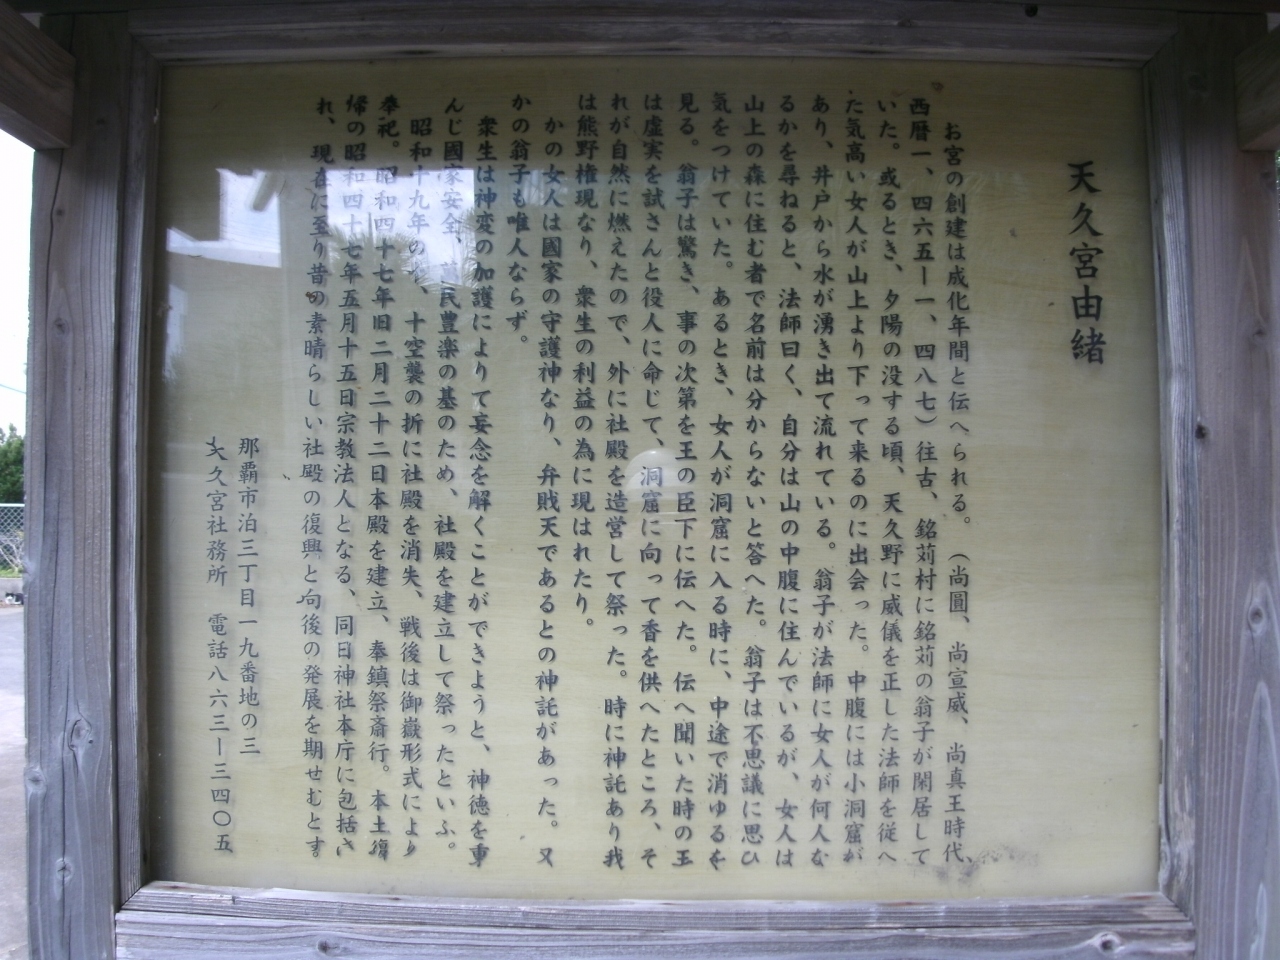 天久宮由緒
お宮の創建は成化年間と伝へられる。（尚圓、尚宣威、尚真王時代、
西暦一、四六五ー一、四八七）往古、銘苅村に銘苅の翁子が閑居して
いた。或るとき、夕陽の没する頃、天久野に威儀を正した法師を従へ
た気高い女人が山上より下って来るのに出会った。中腹には小洞窟が
あり、井戸から水が湧き出て流れている。翁子が法師に女人が何人な
るかを尋ねると、法師曰く、自分は山の中腹に住んでいるが、女人は
山上の森に住む者で名前は分からないと答へた。翁子は不思議に思ひ
気をつけていた。あるとき、女人が洞窟に入る時に、中途で消ゆるを
見る。翁子は驚き、事の次第を王の臣下に伝へた。伝へ聞いた時の王
は虚実を試さんと役人に命じて、洞窟に向って香を供へたところ、そ
れが自然に燃えたので、外に社殿を造営して祭った。時に神託あり我
は熊野権現なり、衆生の利益の為に現はれたり。
かの女人は國家の守護神なり、弁戝天であるとの神託があった。又
かの翁子も唯人ならず。
衆生は神変の加護によりて妄念を解くことができようと、神徳を重
んじ國家安全、萬民豊楽の基のため、社殿を建立して祭ったといふ。
昭和十九年の、十空襲の折に社殿を消失、戦後は御嶽形式により
奉祀。昭和四十七年旧二月二十二日本殿を建立、奉鎮祭斎行。本土復
帰の昭和四十七年五月十五日宗教法人となる、同日神社本庁に包括さ
れ、現在に至り昔の素晴らしい社殿の復興と向後の発展を期せむとす。
那覇市泊三丁目一九番地の三
天久宮社務所　電話八六三ー三四〇五